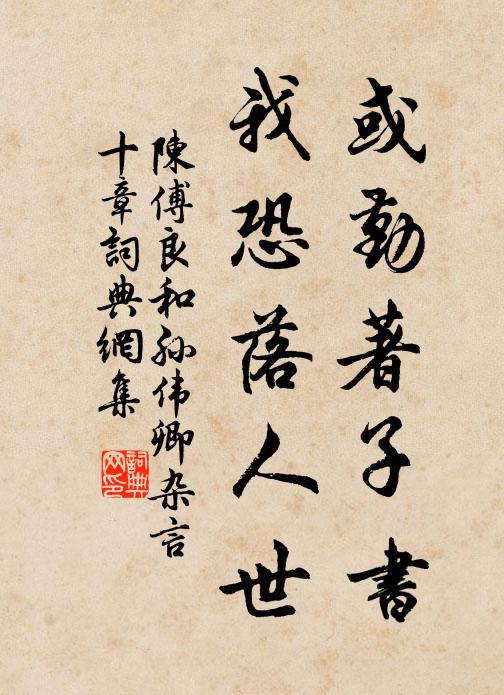 或勤著子書
我恐落人世
陳傅良和孙伟卿杂言
十章詞典網集
詞典网印